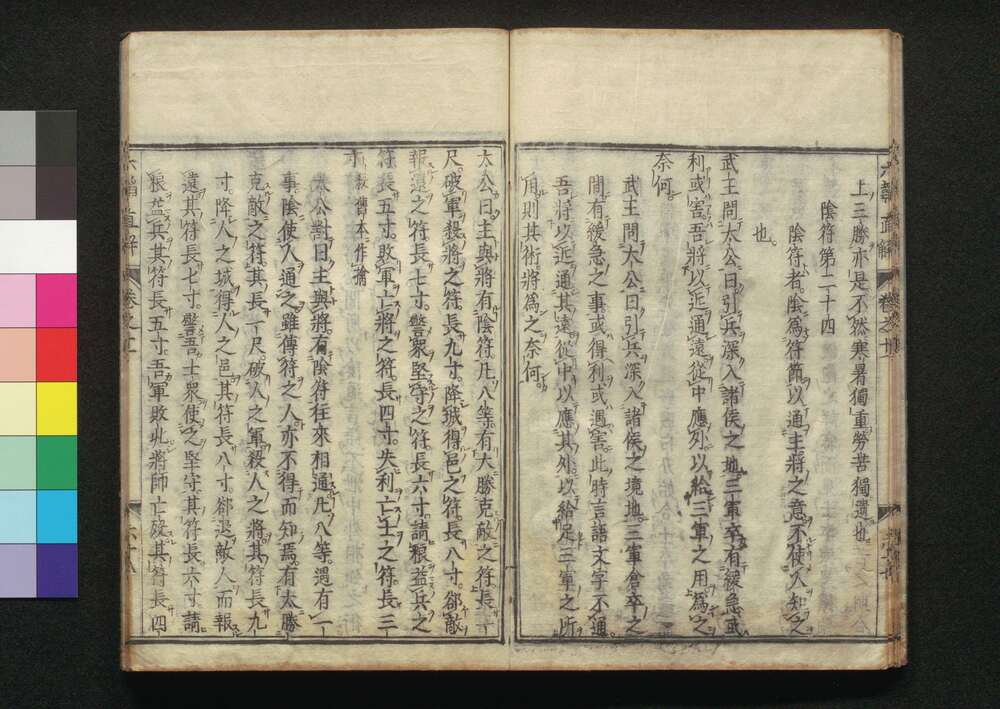 上三勝亦是不然寒暑獨重勞苦獨遺也
陰符第二十四
陰符者陰爲符節以通主將之意不使人知之
也。
武王問太公曰引兵深入諸侯之地三軍卒有緩急或
利或害。吾將以近通遠從中應外以給三軍之用爲之
奈何。
武王問太公曰引兵深入諸侯之境地三軍倉卒之
間有緩急之事或得利或遇害。此時言語文字不通。
吾將以近通其遠從中以應其外以給足三軍之所
用則其術將爲之奈何。
太公曰。主與將有陰符。凡八等。有大勝克敵之符。長一
尺破軍殺將之符。長九寸。降城得邑之符長八寸。卻敵
報遠之符。長七寸。警衆堅守之符。長六寸。請糧益兵之
符。長五寸。敗軍亡將之符。長四寸。失利亡士之符。長三
寸 舊本作擒
太公對曰主與將有陰符往來相通凡八等。遇有一
事陰使人通之雖傳符之人亦不得而知焉。有大勝
克敵之符其長一尺破人之軍殺人之將其符長九
寸。降人之城得人之邑其符長八寸。卻退敵人而報
遠其符長七寸。警吾士衆使之堅守其符長六寸。請
糧益兵其符長五寸。吾軍敗北將師亡歿其符長四
六韜直解
卷之十
六韜直解
卷之十
六十八